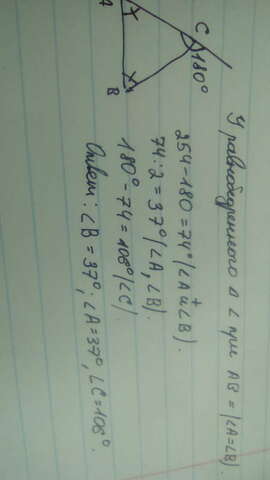 У равнобедренного Δ ∠ при AB = (∠A=∠B).
254-180=74° (∠A и ∠B).
+
74:2=37° (∠A, ∠B).
180°-74=106° (∠C).
Ответ: ∠B=37°; ∠A=37°, ∠C=106°.
C
180°
A
B